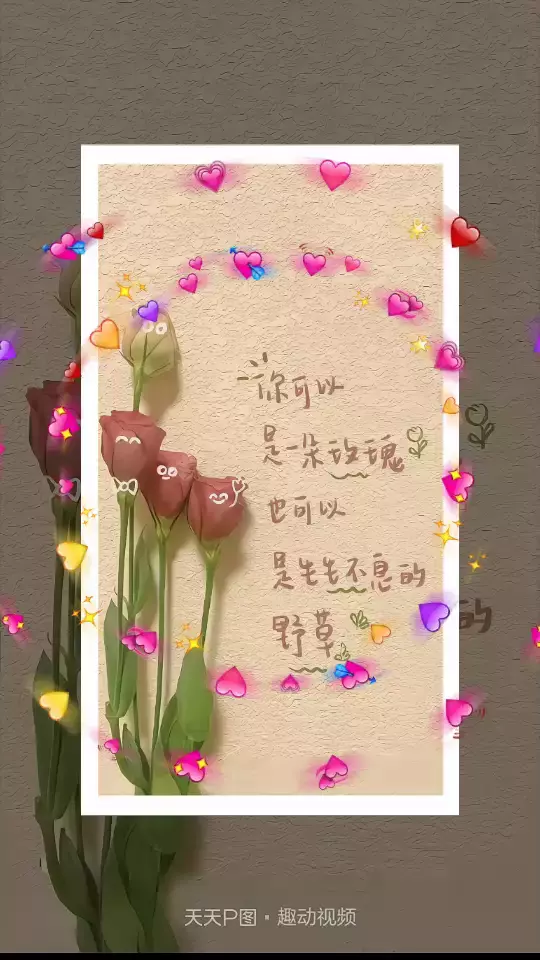 你可以
是一朵玫瑰
也可以
是生生不息的
野草
的
天天P图·趣动视频